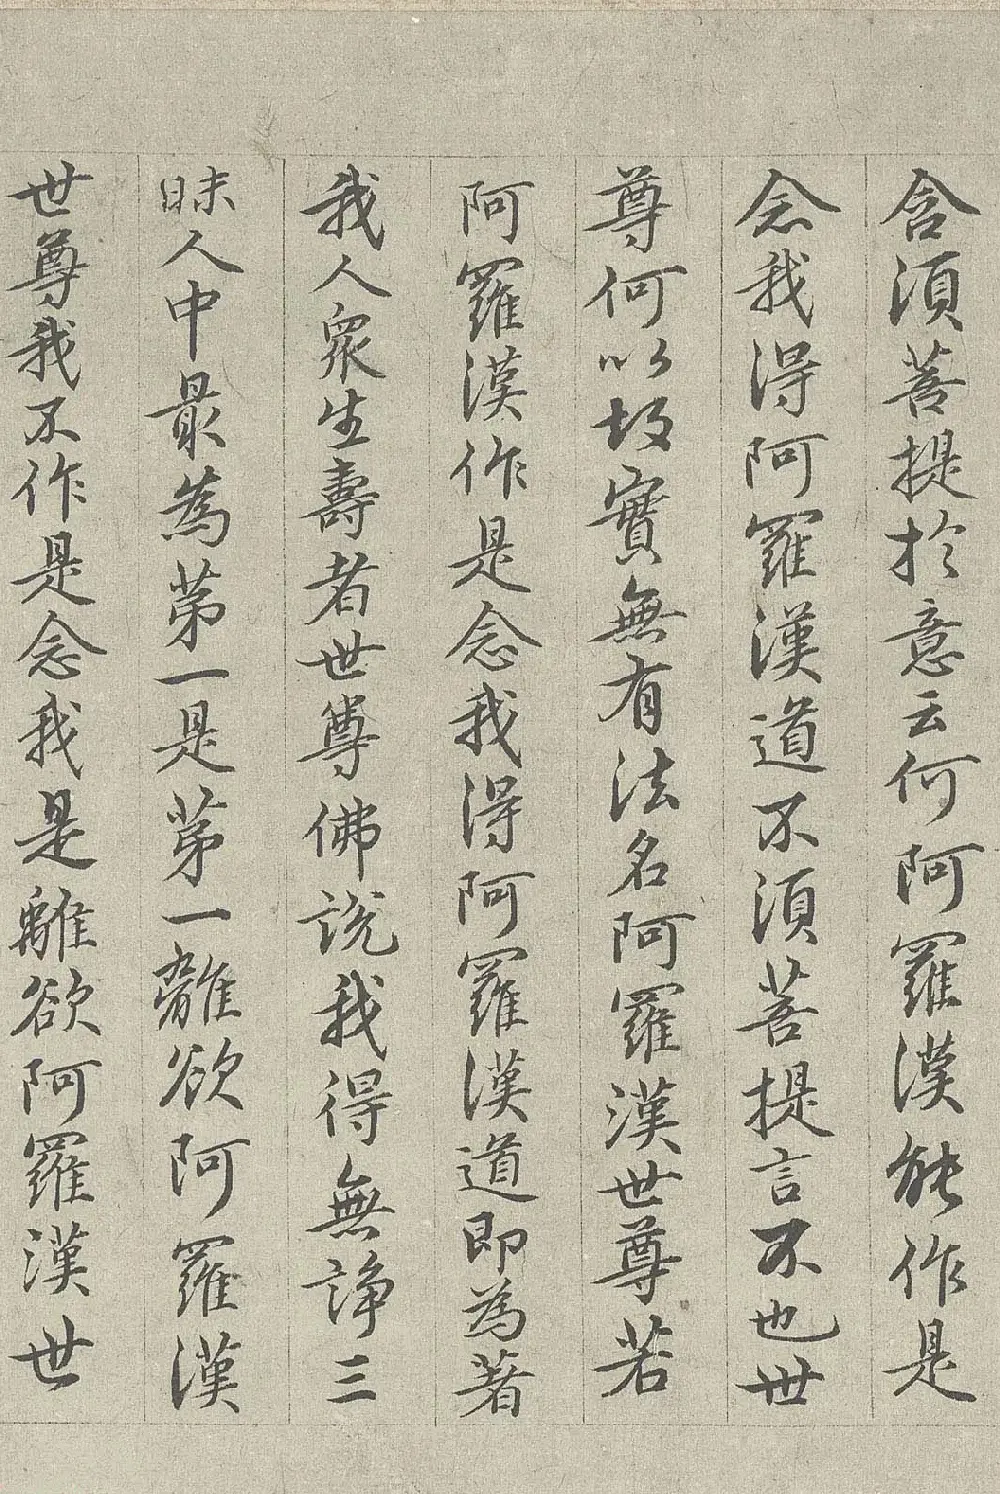 含須菩提於意云何阿羅漢能作是
念我得阿羅漢道不須菩提言不也世
尊何以故實無有法名阿羅漢世尊若
阿羅漢作是念我得阿羅漢道即為著
我人眾生壽者世尊佛說我得無諍三
昧人中最為第一是第一離欲阿羅漢
世尊我不作是念我是離欲阿羅漢世